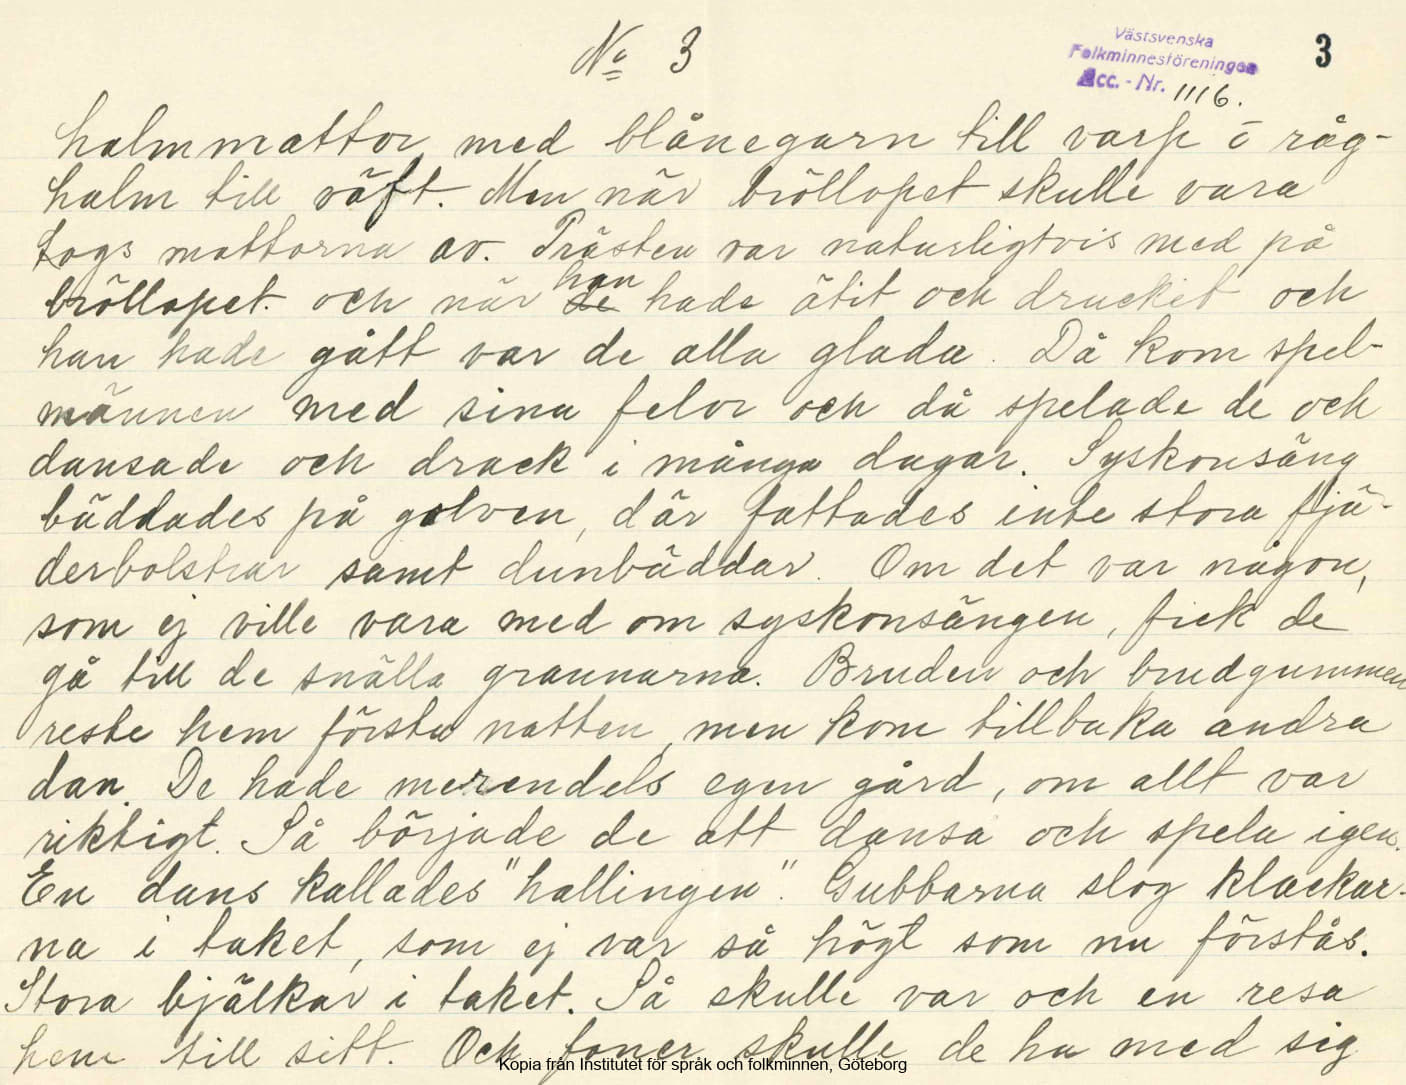 No 3
Västsvenska
Folkminnesföreningen
Acc. - Nr. 1116.
3
halmmattor med blånegarn till varp o råg-
halm till väft. Men när bröllopet skulle vara
togs mattorna av. Prästen var naturligtvis med på
bröllopet och när de han hade ätit och druckit och
han hade gått var de alla glada. Då kom spel-
männen med sina felor och då spelade de och
dansade och drack i många dagar. Syskonsäng
bäddades på golven, där fattades inte stora fjä-
derbolstrar samt dunbäddar. Om det var någon,
som ej ville vara med om syskonsängen, fick de
gå till de snälla grannarna. Bruden och brudgummen
reste hem första natten, men kom tillbaka andra
dan. De hade merendels egen gård, om allt var
riktigt. Så började de att dansa och spela igen.
En dans kallades "hallingen". Gubbarna slog klackar-
na i taket, som ej var så högt som nu förstås.
Stora bjälkar i taket. Så skulle var och en resa
hem till sitt. Och foner skulle de ha med sig
Kopia från Institutet för språk och folkminnen, Göteborg